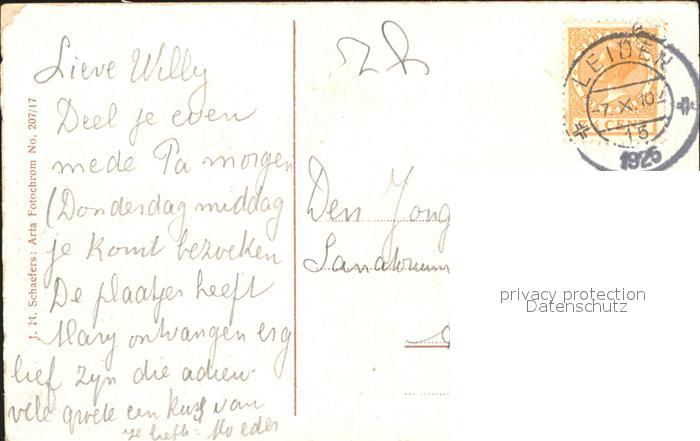 Lieve Willy
Deel je even
mede Pa morgen
(Donderdag middag
je komt bezoeken
De plaatjes heeft
Mary ontvangen erg
lief zijn die adieu
vele groete een kus van
je liefh: Moeder
J. H. Schaefers: Arta Fotochrom No. 207/17
LEIDEN
-7.X.10
15
1925
CENT
Den Jong
Sanatorium
privacy protection
Datenschutz